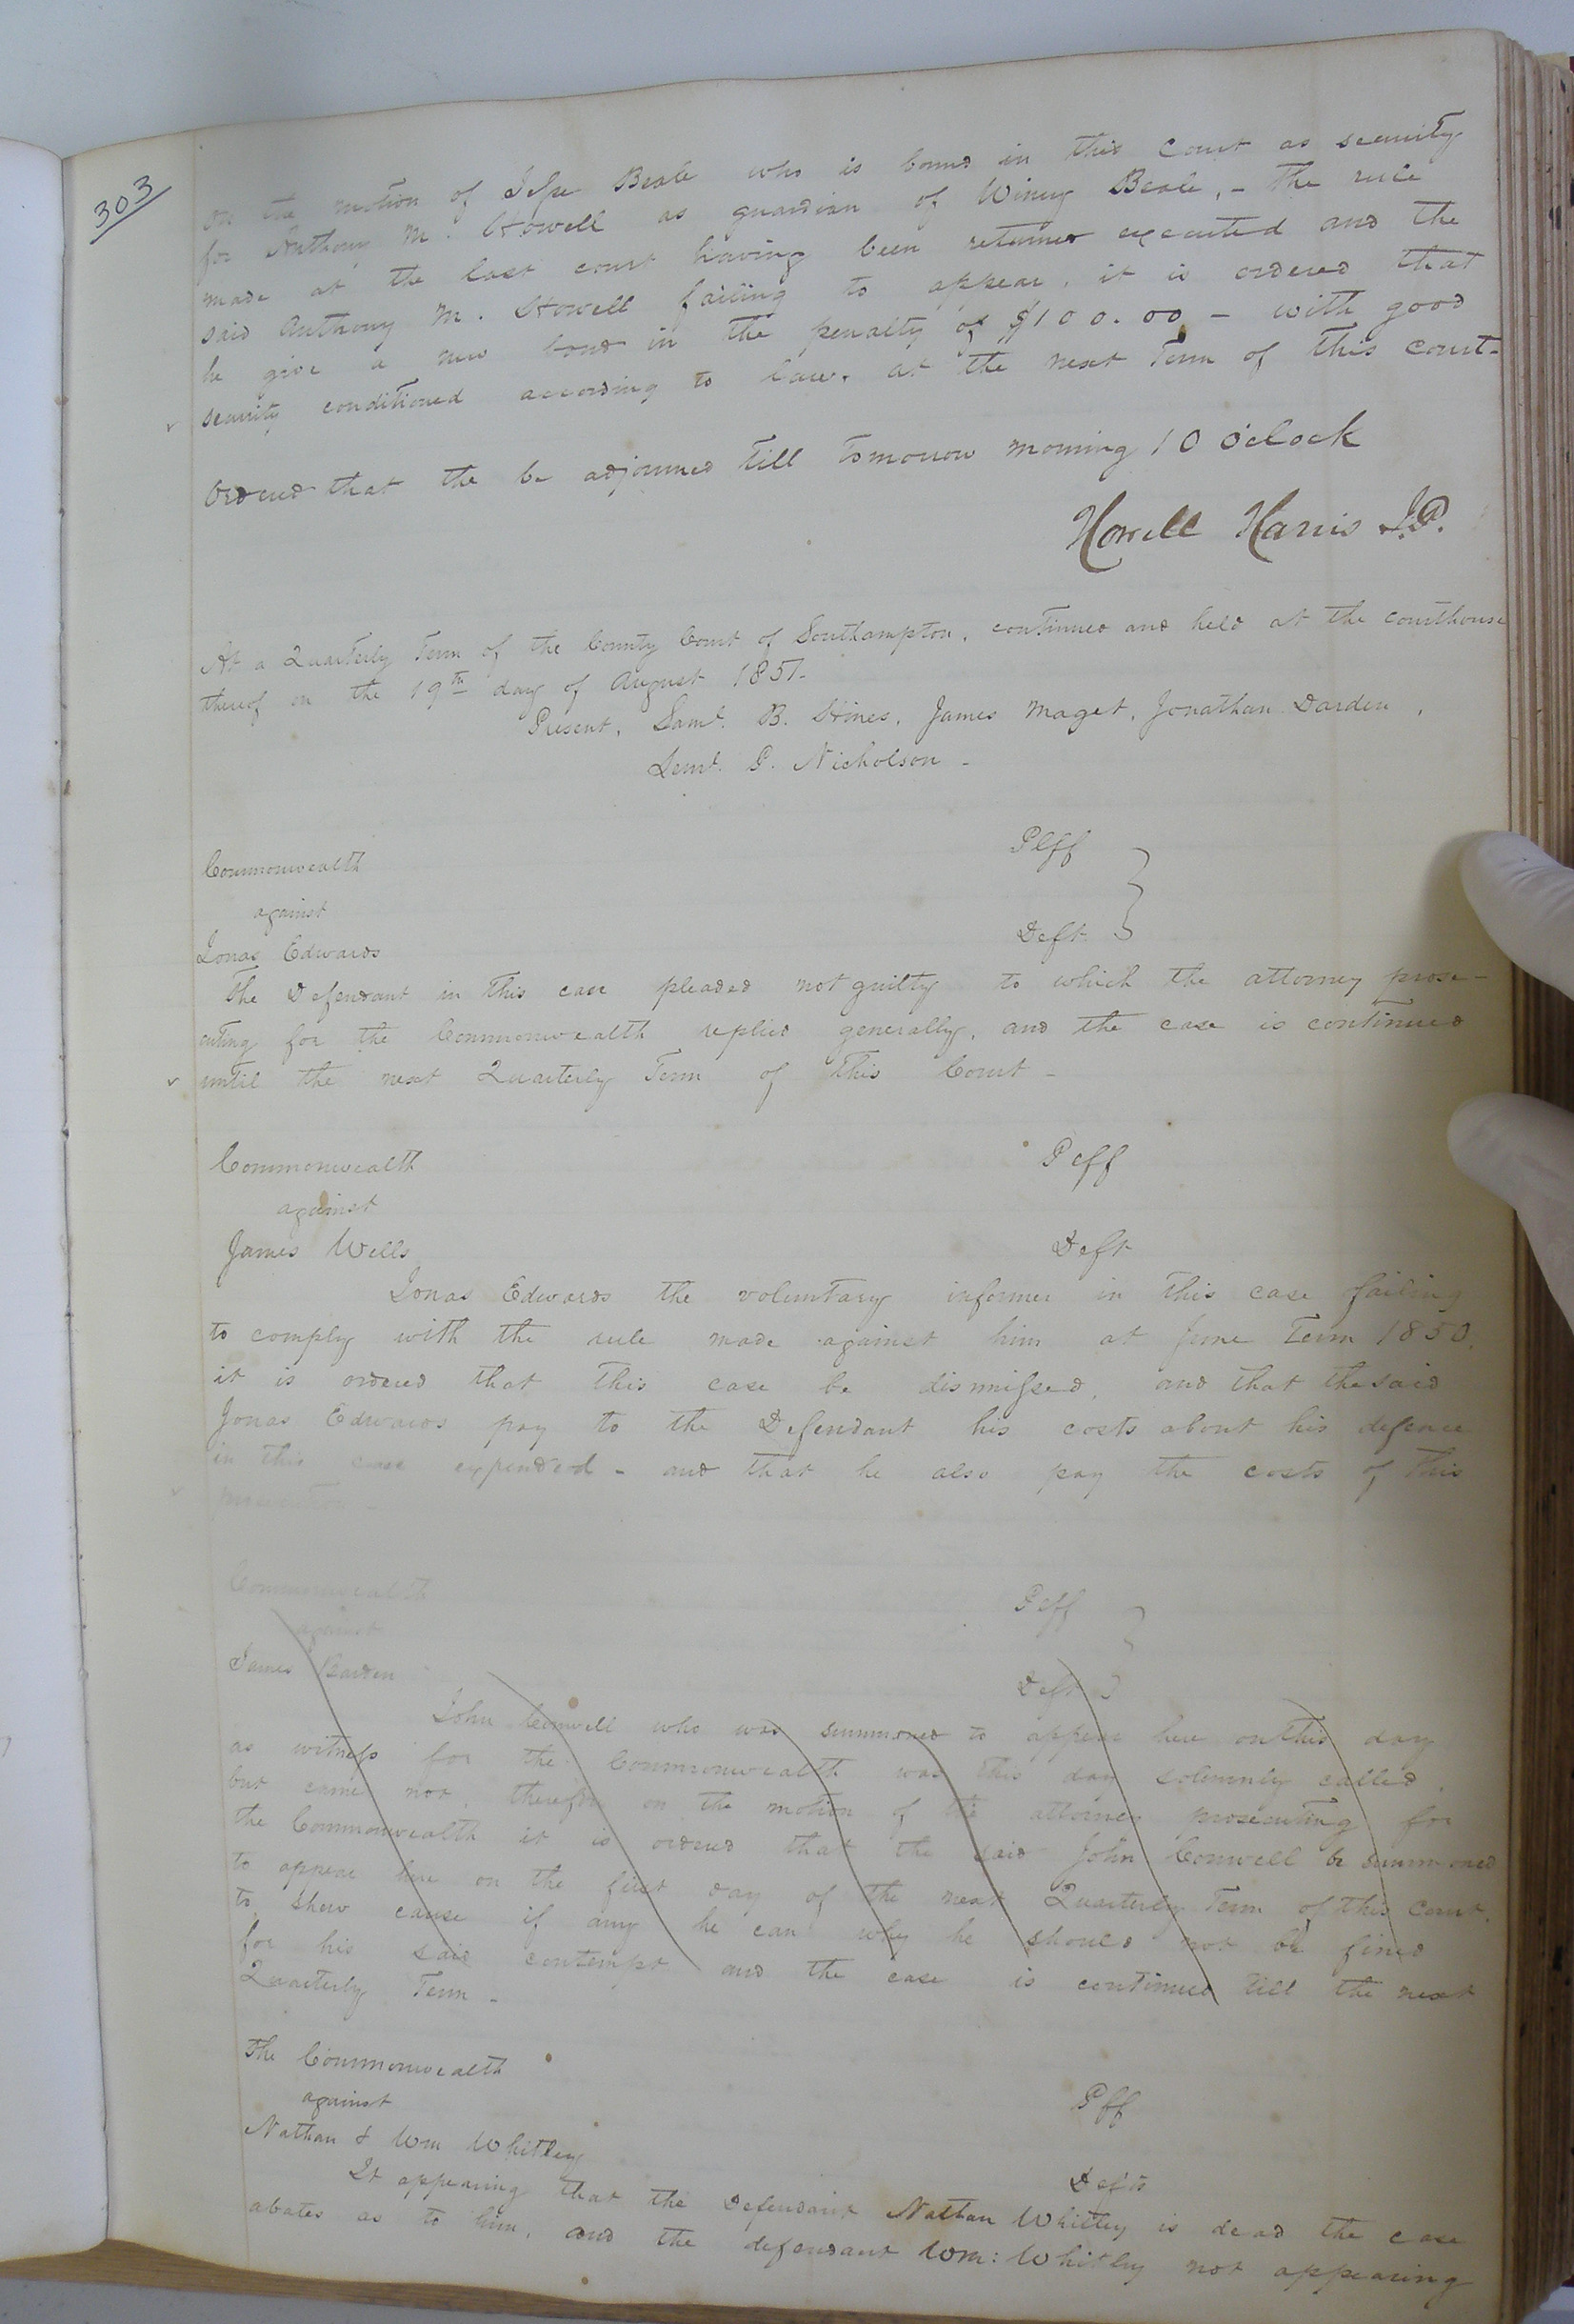 303
On the motion of Jesse Beale who is bound in this Court as security
for Anthony M. Howell as guardian of Winny Beale, - the rule
made at the last court having been returned executed and the
said Anthony M. Howell failing to appear, it is ordered that
he give a new bond in the penalty of $100.00 - with good
security conditioned according to law, at the next Term of this court-
Ordered that the be adjourned till tomorrow morning 10 o'clock
Howell Harris J.P.
At a Quarterly Term of the County Court of Southampton, continued and held at the courthouse
thereof on the 19th day of August 1851-
Present, Saml. B. Hines, James Maget, Jonathan Darden,
Leml. P. Nicholson -
Commonwealth Plff
against
Jonas Edwards Deft
The Defendant in this case pleaded not guilty to which the attorney prose-
cuting for the Commonwealth replied generally, and the case is continued
until the next Quarterly Term of this Court -
Commonwealth Plff
against
James Wells Deft
Jonas Edwards the voluntary informer in this case failing
to comply with the rule made against him at June Term 1850,
it is ordered that this case be dismissed, and that the said
Jonas Edwards pay to the Defendant his costs about his defence
in this case expended - and that he also pay the costs of this
prosecution -
Commonwealth Plff
against
James Barden Deft
John Conwell who was summoned to appear here on this day
as witness for the Commonwealth was this day solemnly called,
but came not, therefore on the motion of the attorney prosecuting for
the Commonwealth it is ordered that the said John Conwell be summoned
to appear here on the first day of the next Quarterly Term of this Court,
to shew cause if any he can why he should not be fined
for his said contempt and the case is continued till the next
Quarterly Term -
The Commonwealth Plff
against
Nathan & Wm Whitley Defts
It appearing that the Defendant Nathan Whitley is dead the case
abates as to him, and the defendant Wm: Whitley not appearing